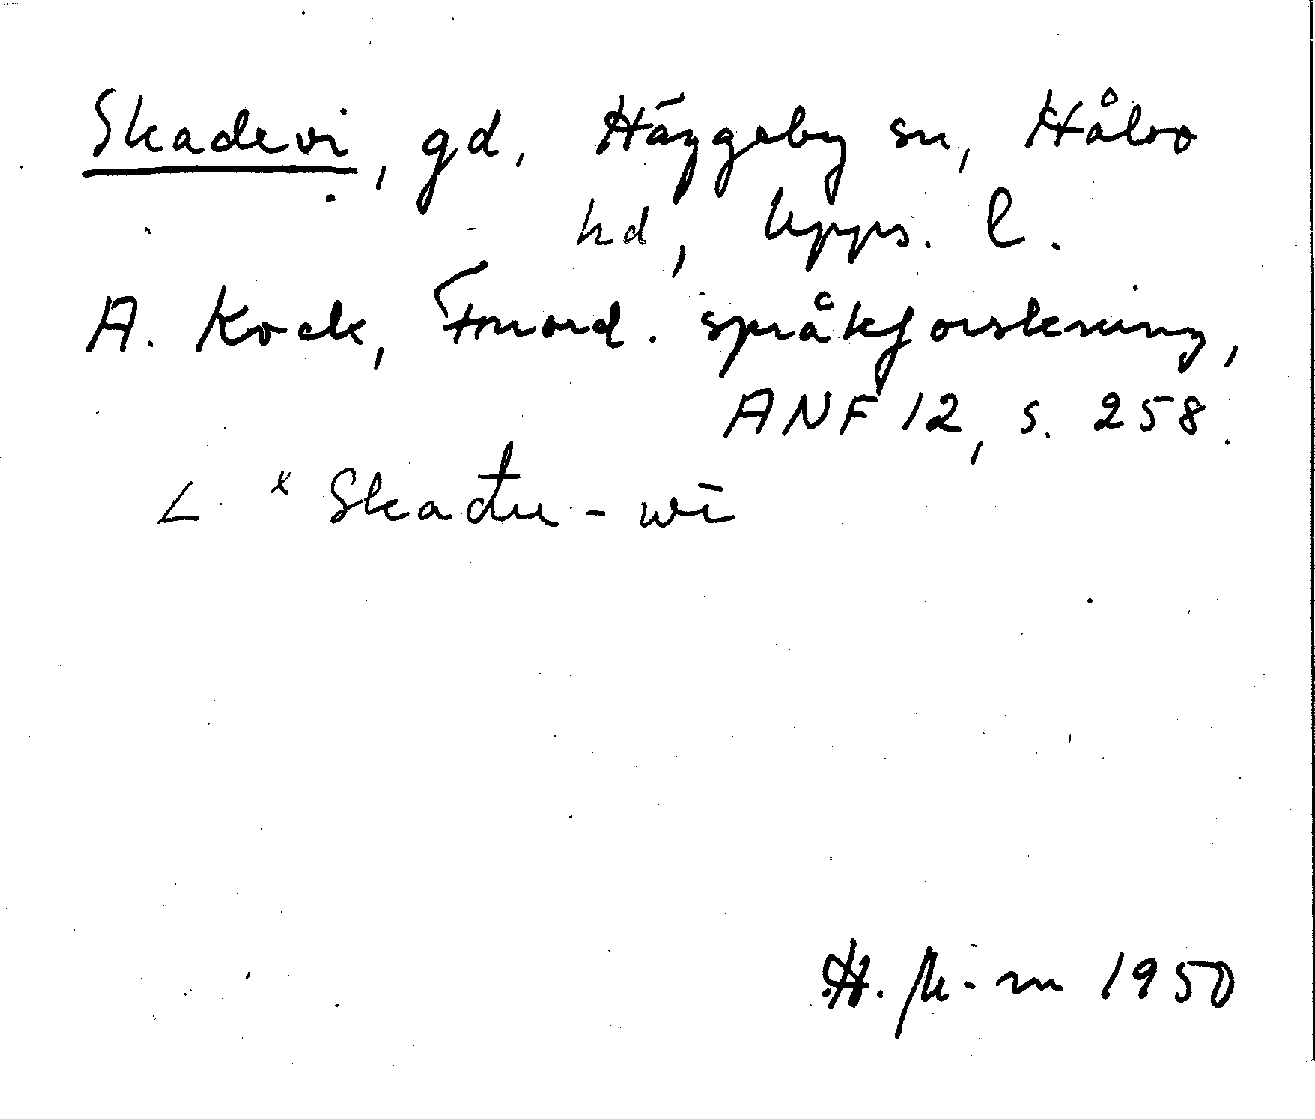 Skadevi, gd, Häggeby sn, Håbo
hd, Upps. l.
A. Kock, Fnord. språkforskning,
ANF 12, s. 258.
< * Skađu-wī
H. 1950